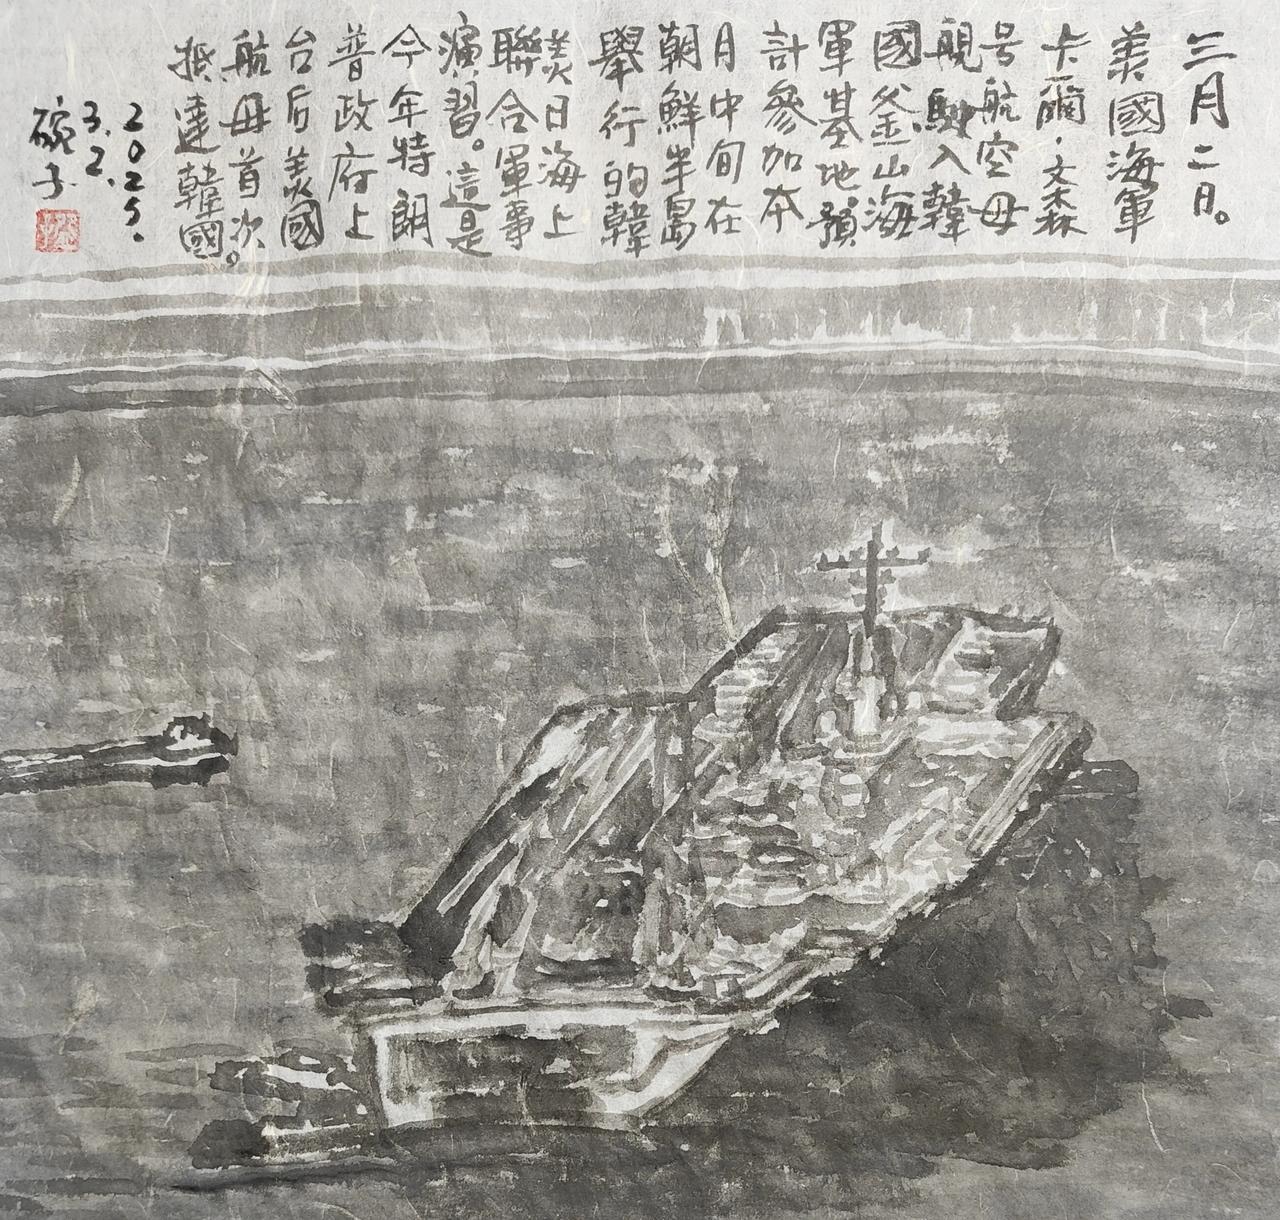 三月二日。
美國海軍
卡爾·文森
号航空母
舰駛入韓
國釜山海
軍基地預
計參加本
月中旬在
朝鮮半島
舉行的韓
美日海上
聯合軍事
演習。這是
今年特朗
普政府上
台后美國
航母首次
抵達韓國。
2025.
3.2.
碗子